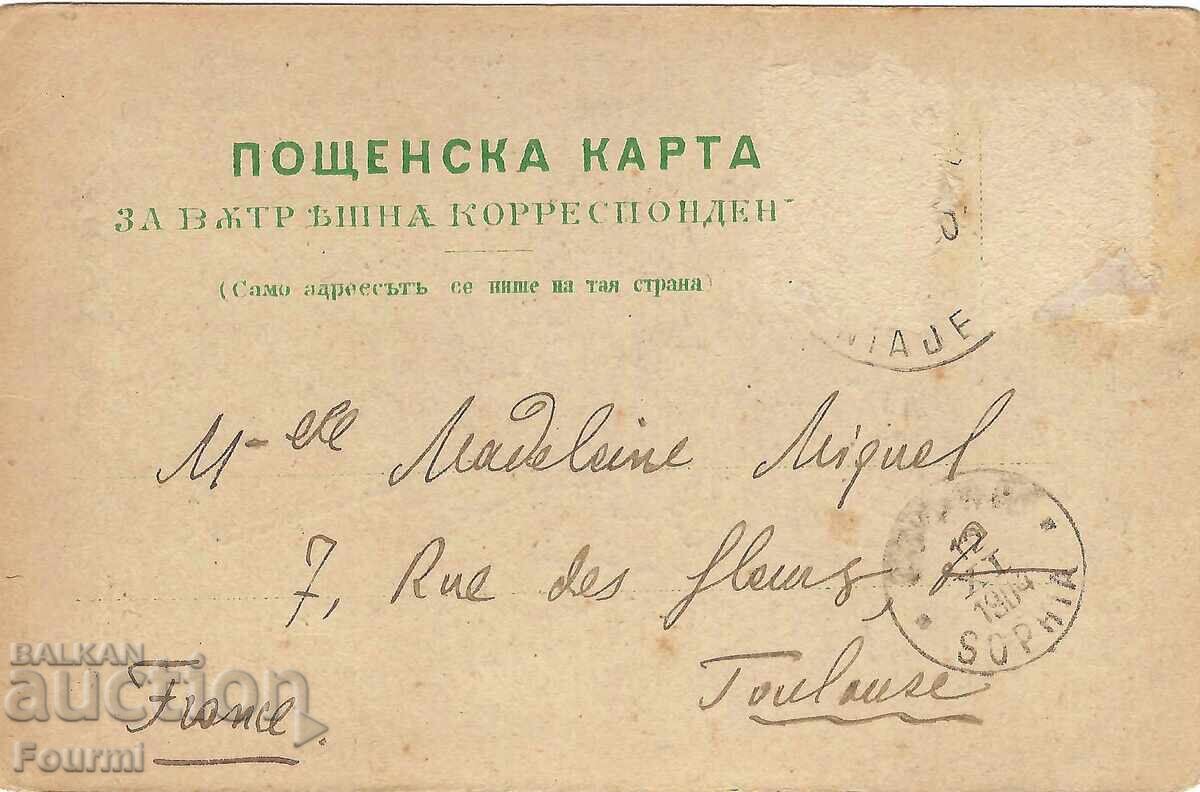 ПОЩЕНСКА КАРТА
ЗА ВѪТРѢШНА КОРРЕСПОНДЕН
(Само адресътъ се пише на тая страна)
NIAJE
M-elle Madeleine Miquel
7, Rue des fleurs,
12
XI
SOPHIA
Toulouse
France.
BALKAN
auction
Fourmi